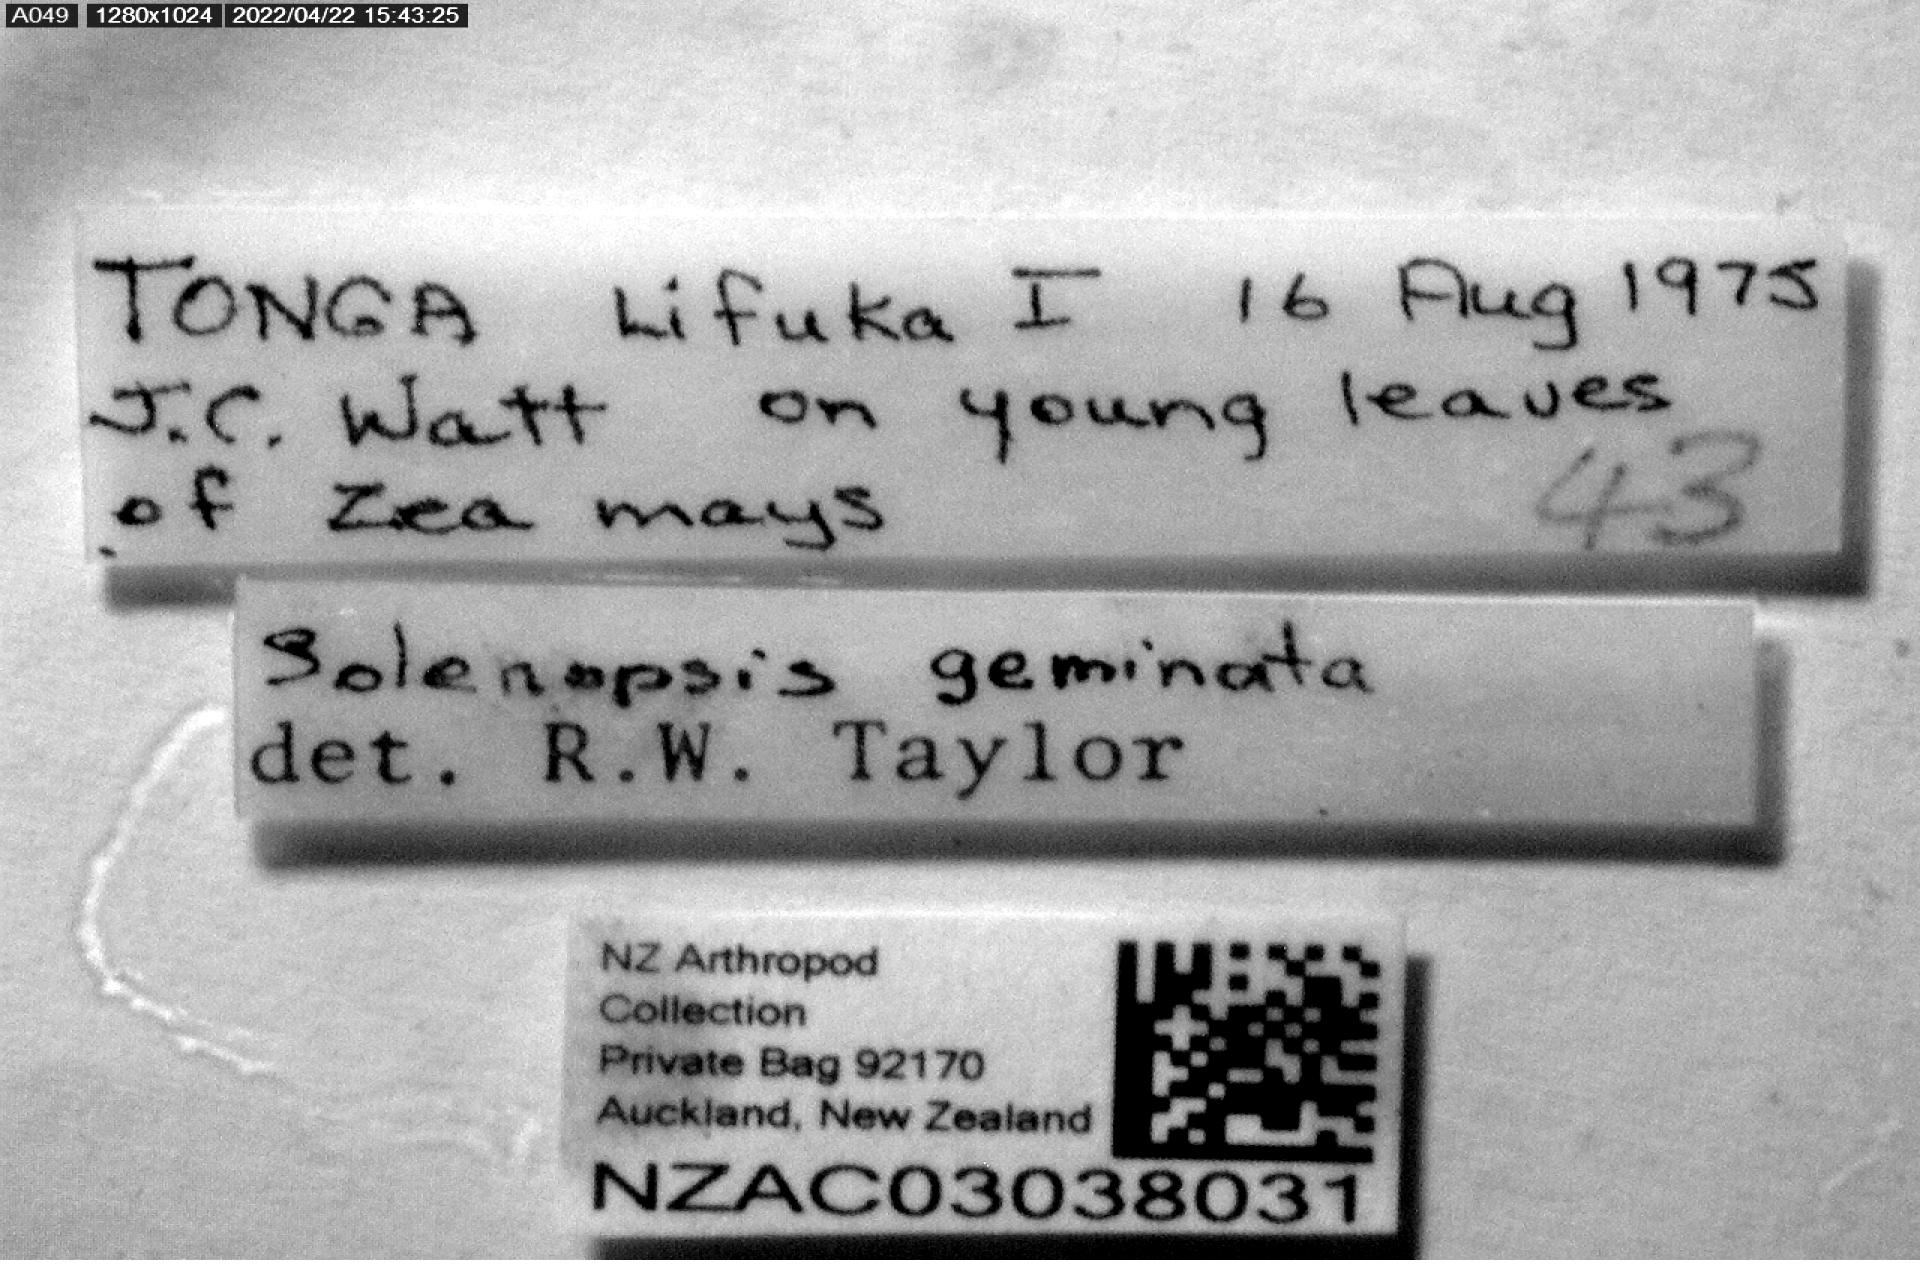 A049 1280x1024 2022/04/22 15:43:25
TONGA Lifuka I 16 Aug 1975
J.C. Watt on young leaves
of Zea mays 43
Solenopsis geminata
det. R.W. Taylor
NZ Arthropod
Collection
Private Bag 92170
Auckland, New Zealand
NZAC03038031